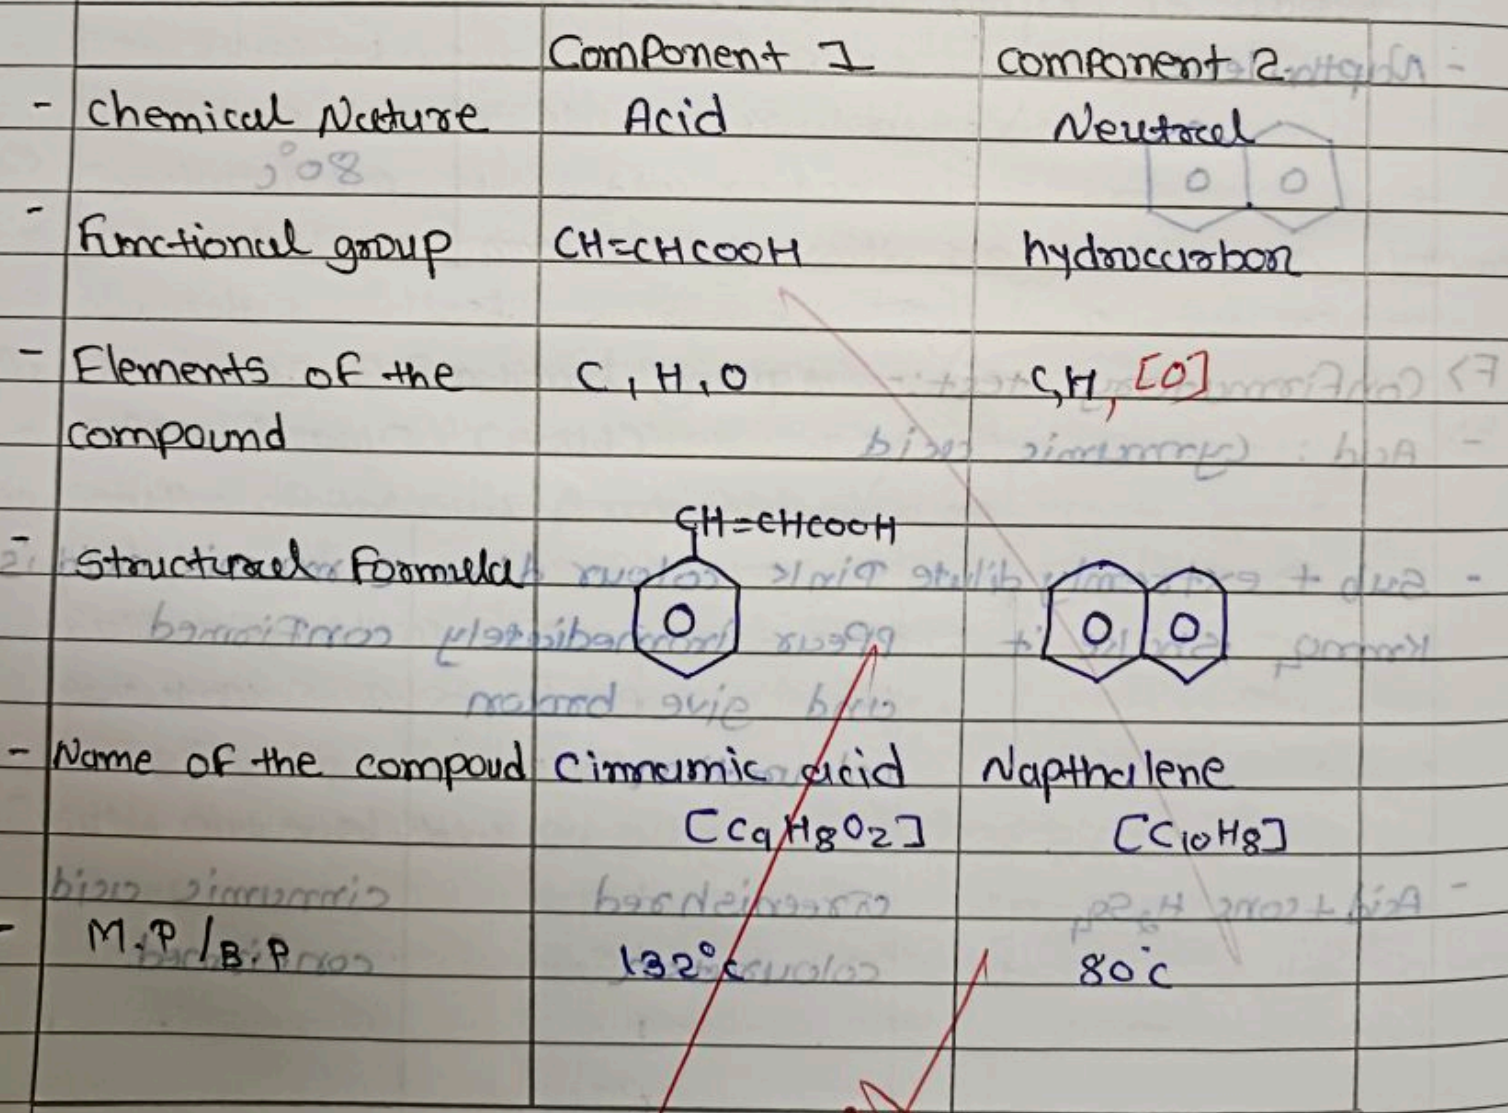 Component 1 component 2
- chemical Nature Acid Neutral
- Functional group CH=CHCOOH hydrocarbon
- Elements of the C, H, O C,H, [O]
compound
CH=CHCOOH
- structural Formula
- Name of the compoud Cinnamic acid Napthalene
[C9H8O2] [C10H8]
- M.P / B.P 132°c 80°c